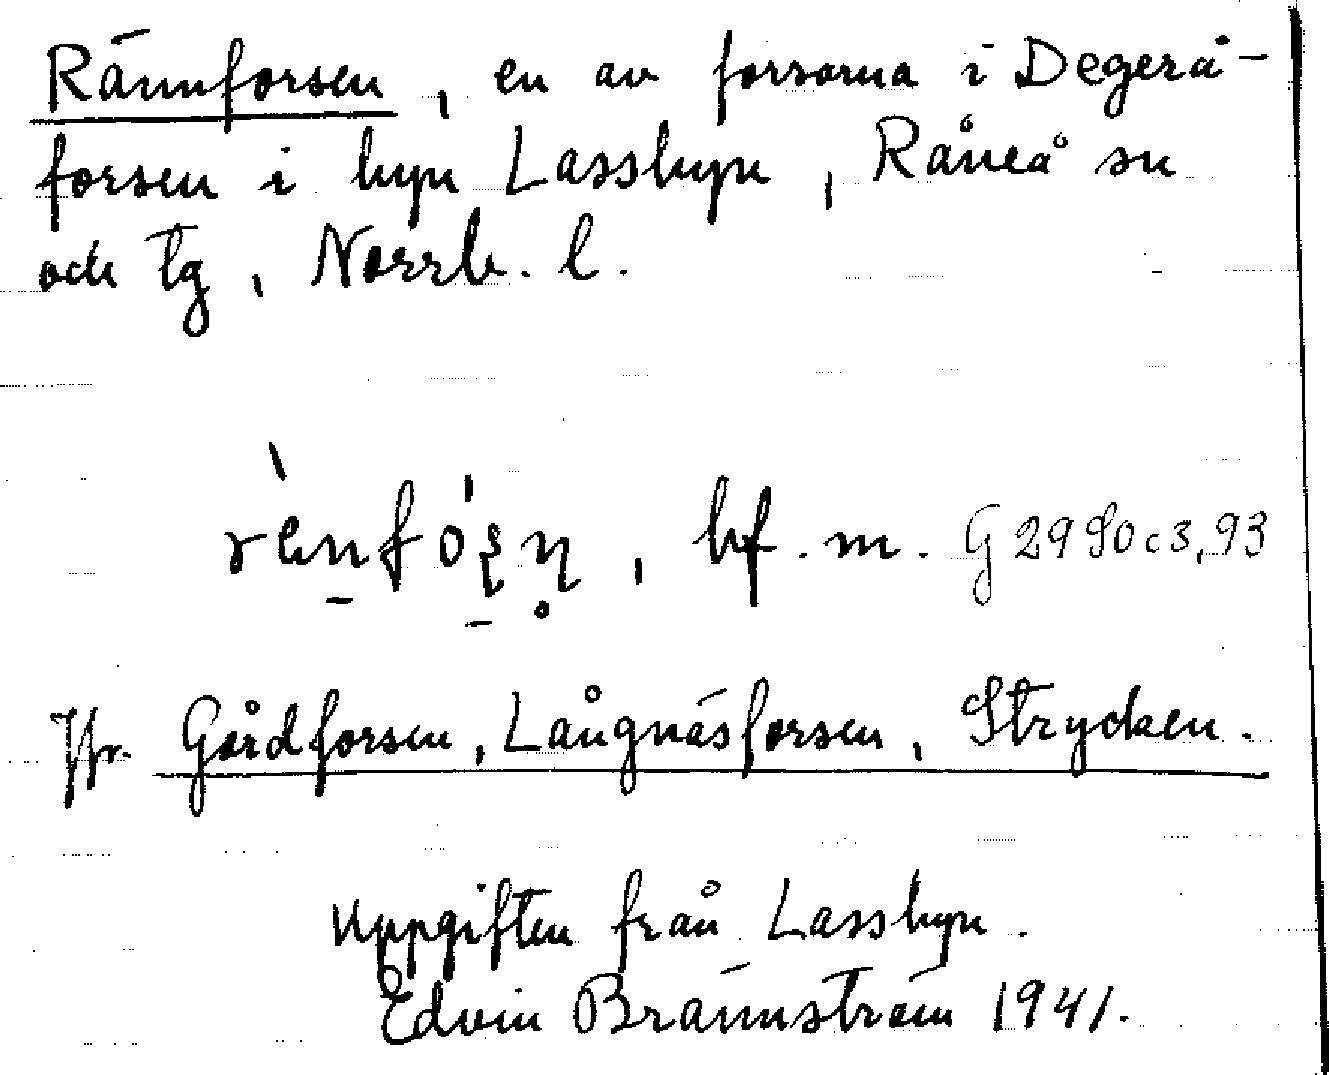 Rännforsen, en av forsarna i Degerå-
forsen i byn Lassbyn, Råneå sn
och tg, Norrb. l.
bf. m. G 2990 c 3, 93
Jfr. Gårdforsen, Långnäsforsen, Strycken.
Uppgiften från Lassbyn.
Edvin Brännström 1941.